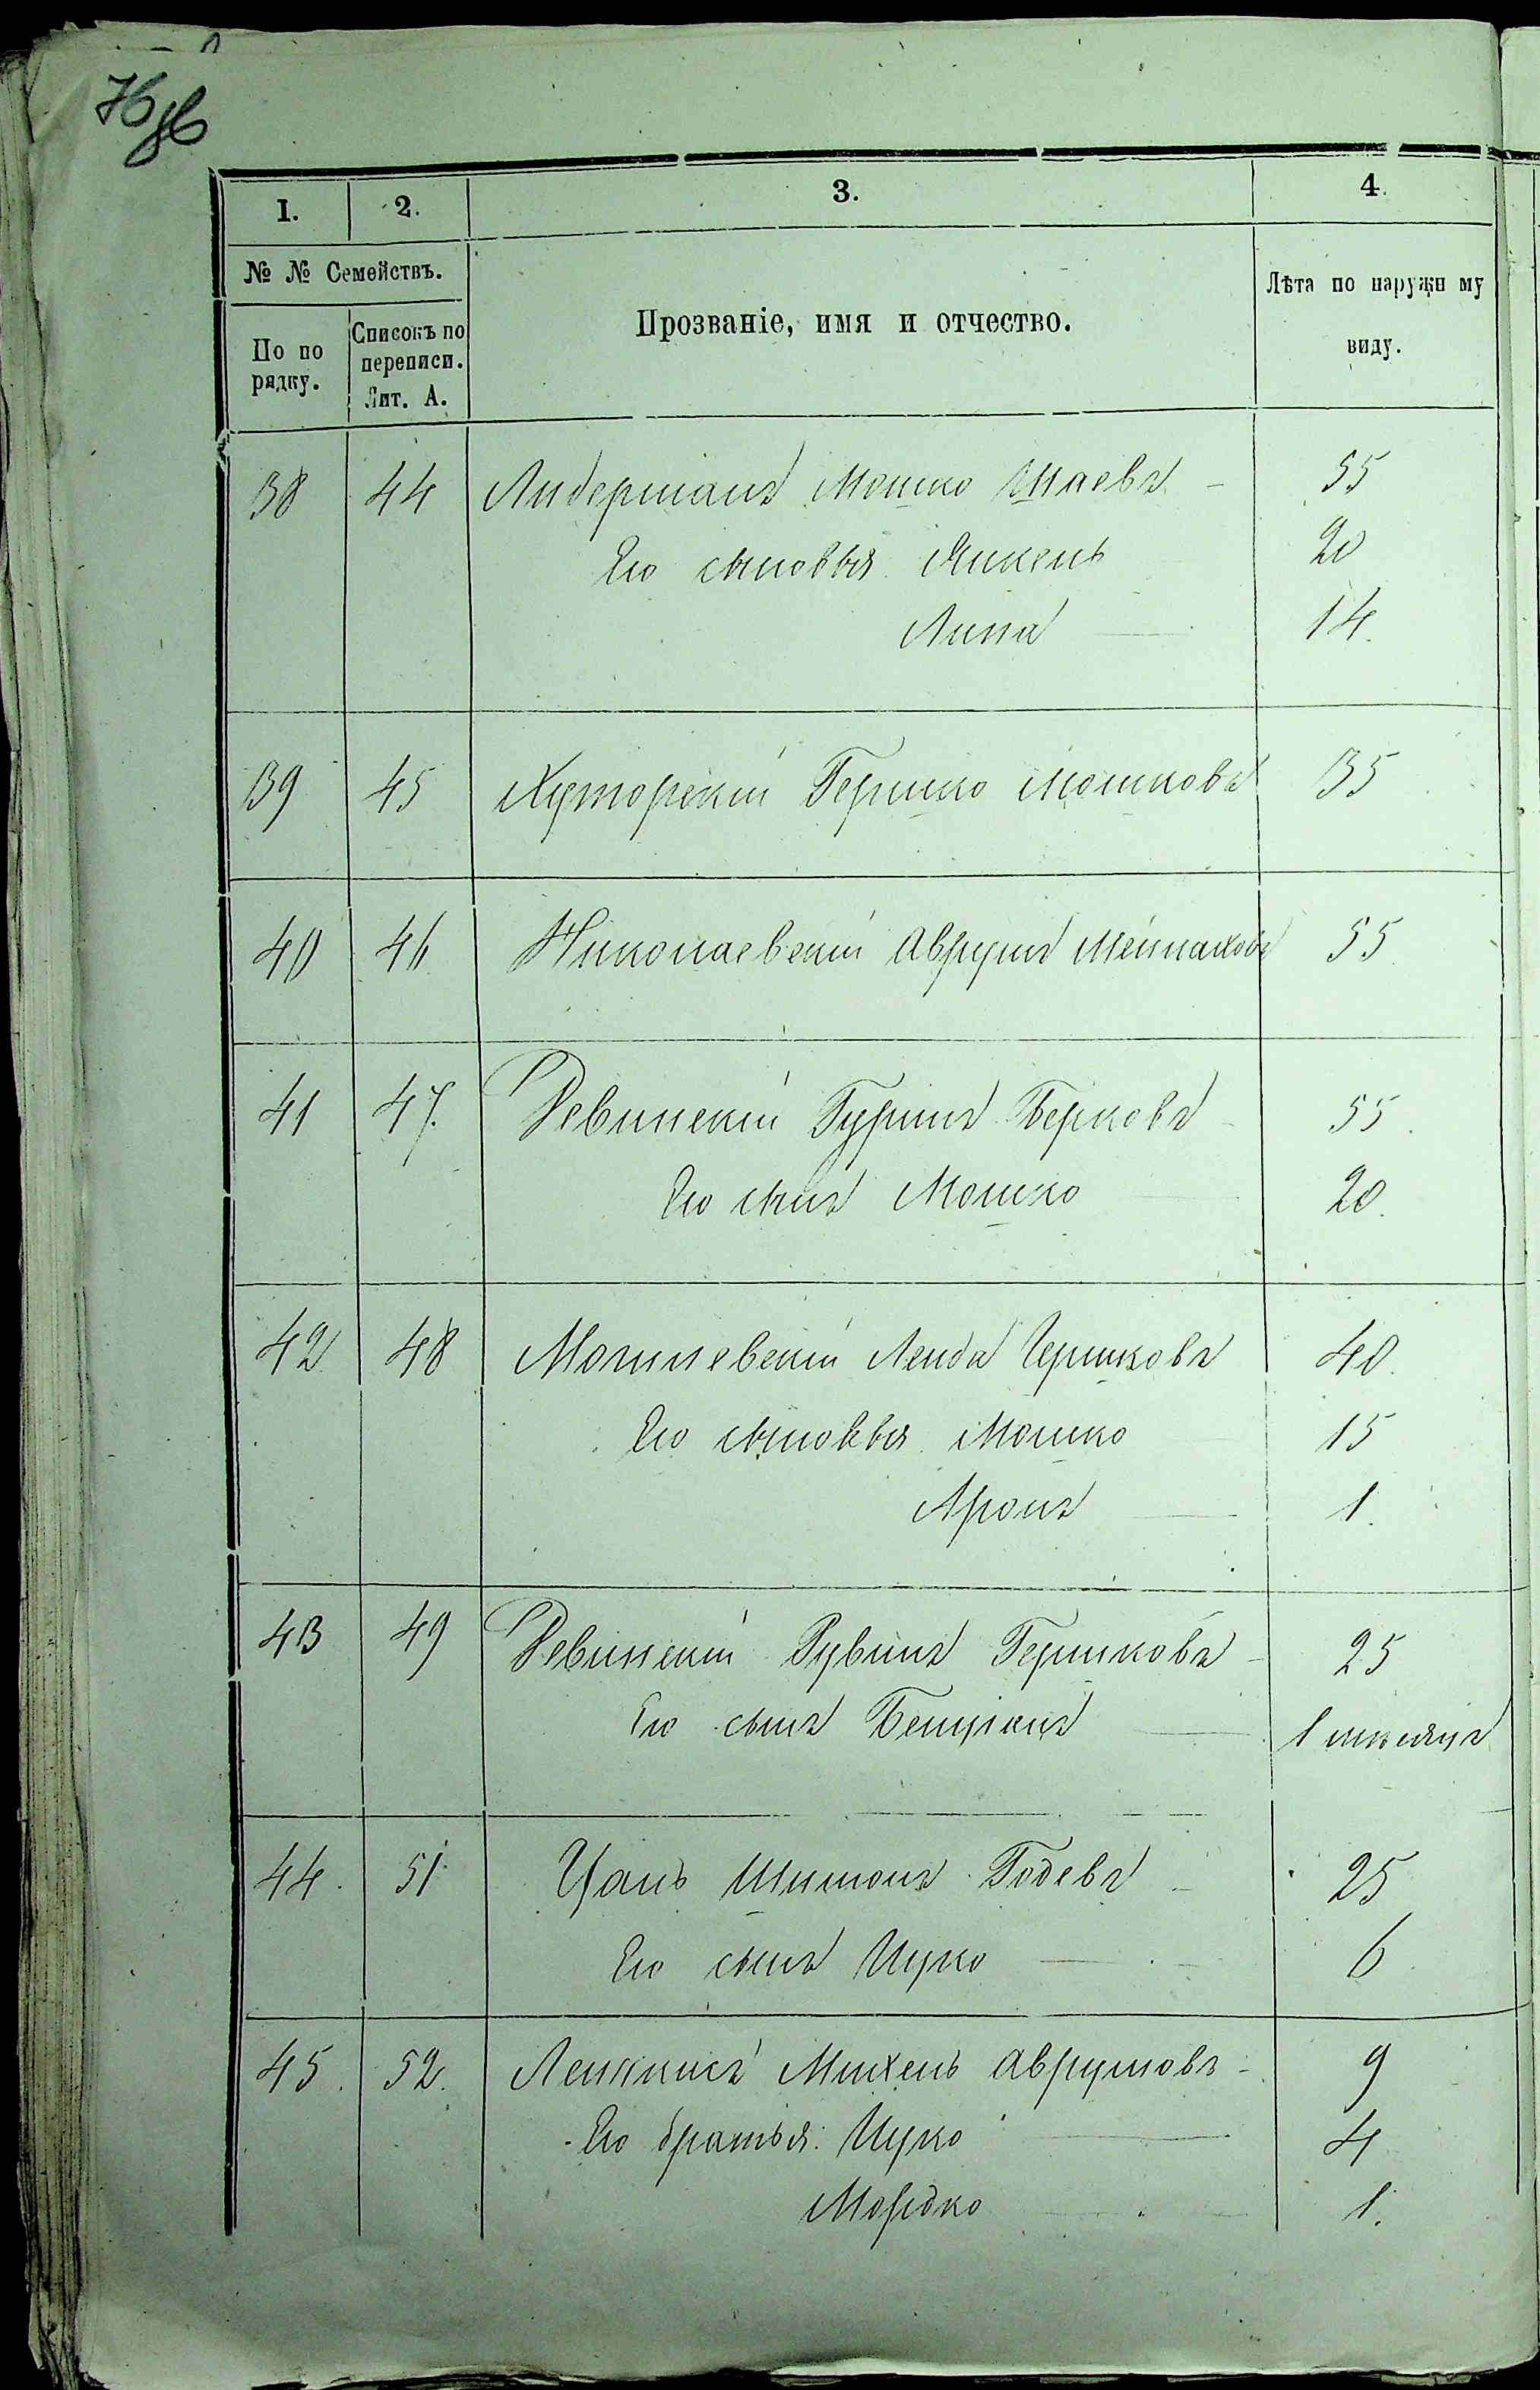 76 об
1. 2. 3. 4.
№ № Семействъ.
По по рядку.
Списокъ по переписи. Лит. А.
Прозваніе, имя и отчество.
Лѣта по наружн му виду.
38 44 Либерманъ Мошко Шаевъ - 55
Его сыновья Янкель 20
Липа 14.
39 45 Хуторскій Гершко Мошковъ 35
40 46 Николаевскій Аврумъ 55
41 47. Левинскій Берковъ 55.
Его сынъ Мошко 20.
42 48 Могилевскій Лейба Гершковъ 40.
Его сыновья Мошко 15
Аронъ 1.
43 49 Левинскій Рувинъ Гершковъ - 25
Его сынъ 1 мѣсяцъ
44. 51 Цапъ Шимонъ 25
Его сынъ Ицко 6
45. 52. Михель Аврумовъ - 9
Его братья: Ицко 4
Мордко 1.